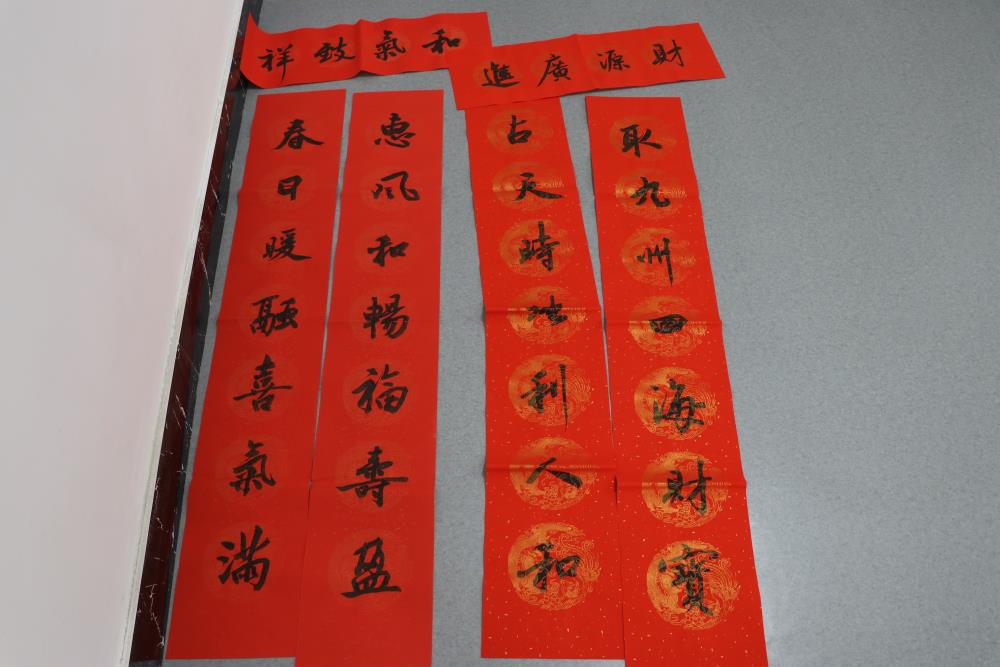 和氣致祥
財源廣進
惠風和暢福壽盈
春日暖融喜氣滿
取九州四海財寶
占天時地利人和